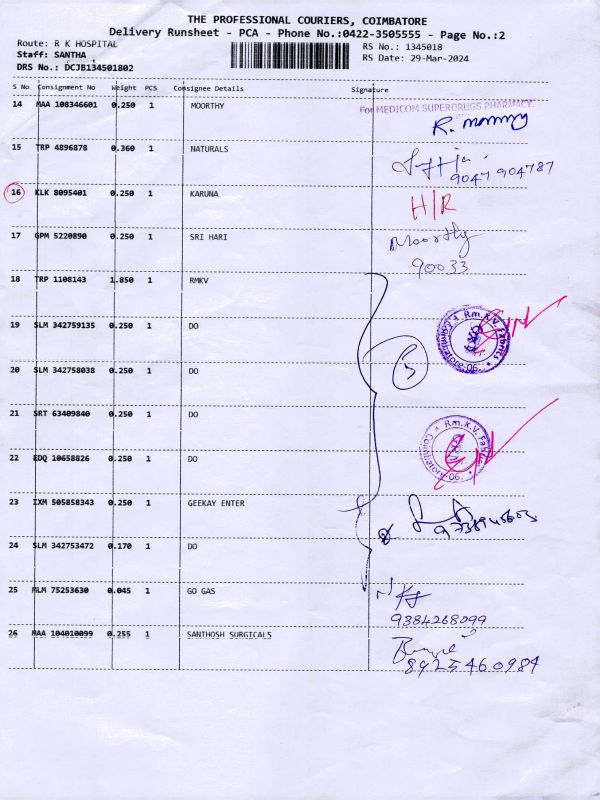 THE PROFESSIONAL COURIERS, COIMBATORE
Delivery Runsheet - PCA - Phone No.:0422-3505555 - Page No.:2
Route: R K HOSPITAL
Staff: SANTHA
DRS No.: DCJB134501802
RS No.: 1345018
RS Date: 29-Mar-2024
S No Consignment No Weight PCS Consignee Details Signature
14 MAA 108346601 0.250 1 MOORTHY
For MEDICOM SUPERDRUGS PHARMACY
15 TRP 4896878 0.360 1 NATURALS
9047 904787
16 KLK 8095401 0.250 1 KARUNA H/R
17 GPM 5220890 0.250 1 SRI HARI Moorthy
90033
18 TRP 1108143 1.850 1 RMKV
19 SLM 342759135 0.250 1 DO
Rm.K.V. Fabrics * Coimbatore-06. *
20 SLM 342758038 0.250 1 DO
5
21 SRT 63409840 0.250 1 DO
Rm.K.V. Fabrics Coimbatore-06. *
22 EDQ 10658826 0.250 1 DO
23 IXM 505858343 0.250 1 GEEKAY ENTER
24 SLM 342753472 0.170 1 DO
25 MLM 75253630 0.045 1 GO GAS
9384268099
26 MAA 104010099 0.255 1 SANTHOSH SURGICALS
8925460984